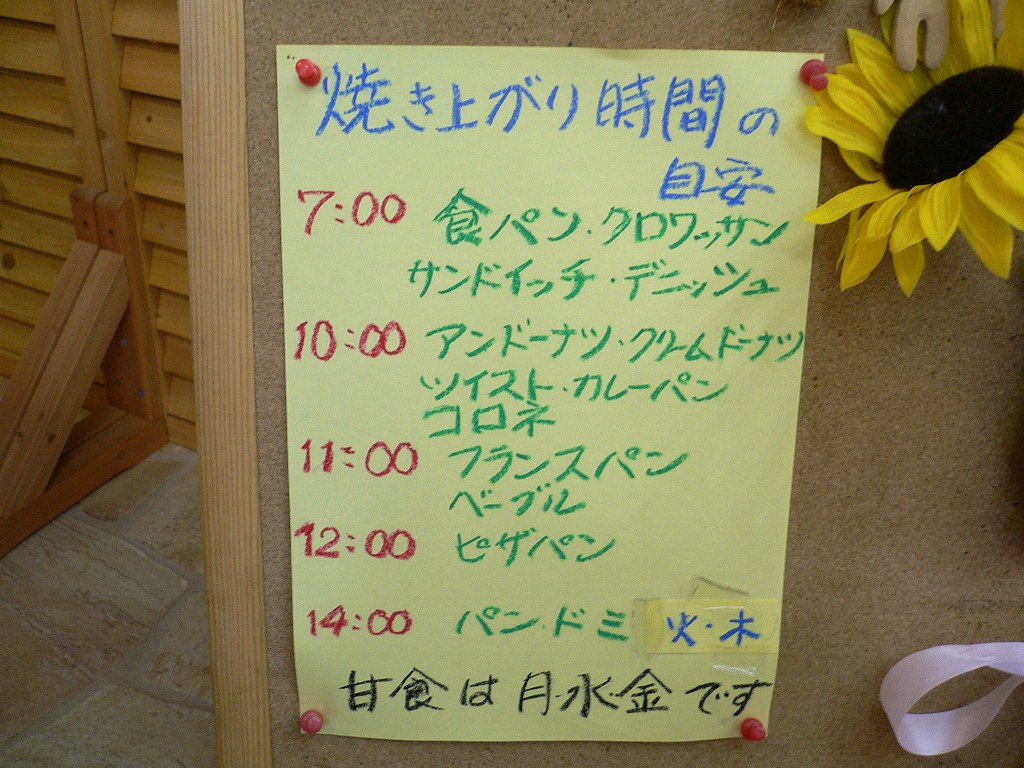 焼き上がり時間の
目安
7:00 食パン・クロワッサン
サンドイッチ・デニッシュ
10:00 アンドーナツ・クリームドーナツ
ツイスト・カレーパン
コロネ
11:00 フランスパン
ベーグル
12:00 ピザパン
14:00 パン・ド・ミ 火・木
甘食は月・水・金です